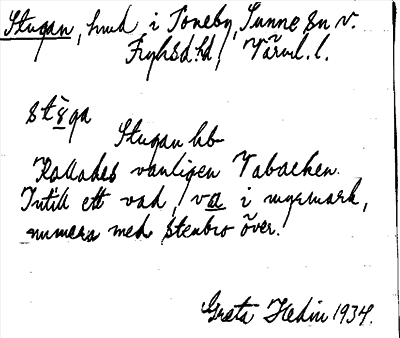 Stugan, hmd i Toneby, Sunne sn v.
Fryksd. hd, Värml. l.
stɣ̀ga
Stugan hb
Kallades vanligen Tabacken.
Intill ett vad, va i myrmark,
numera med stenbro över.
Greta Hedin 1934.